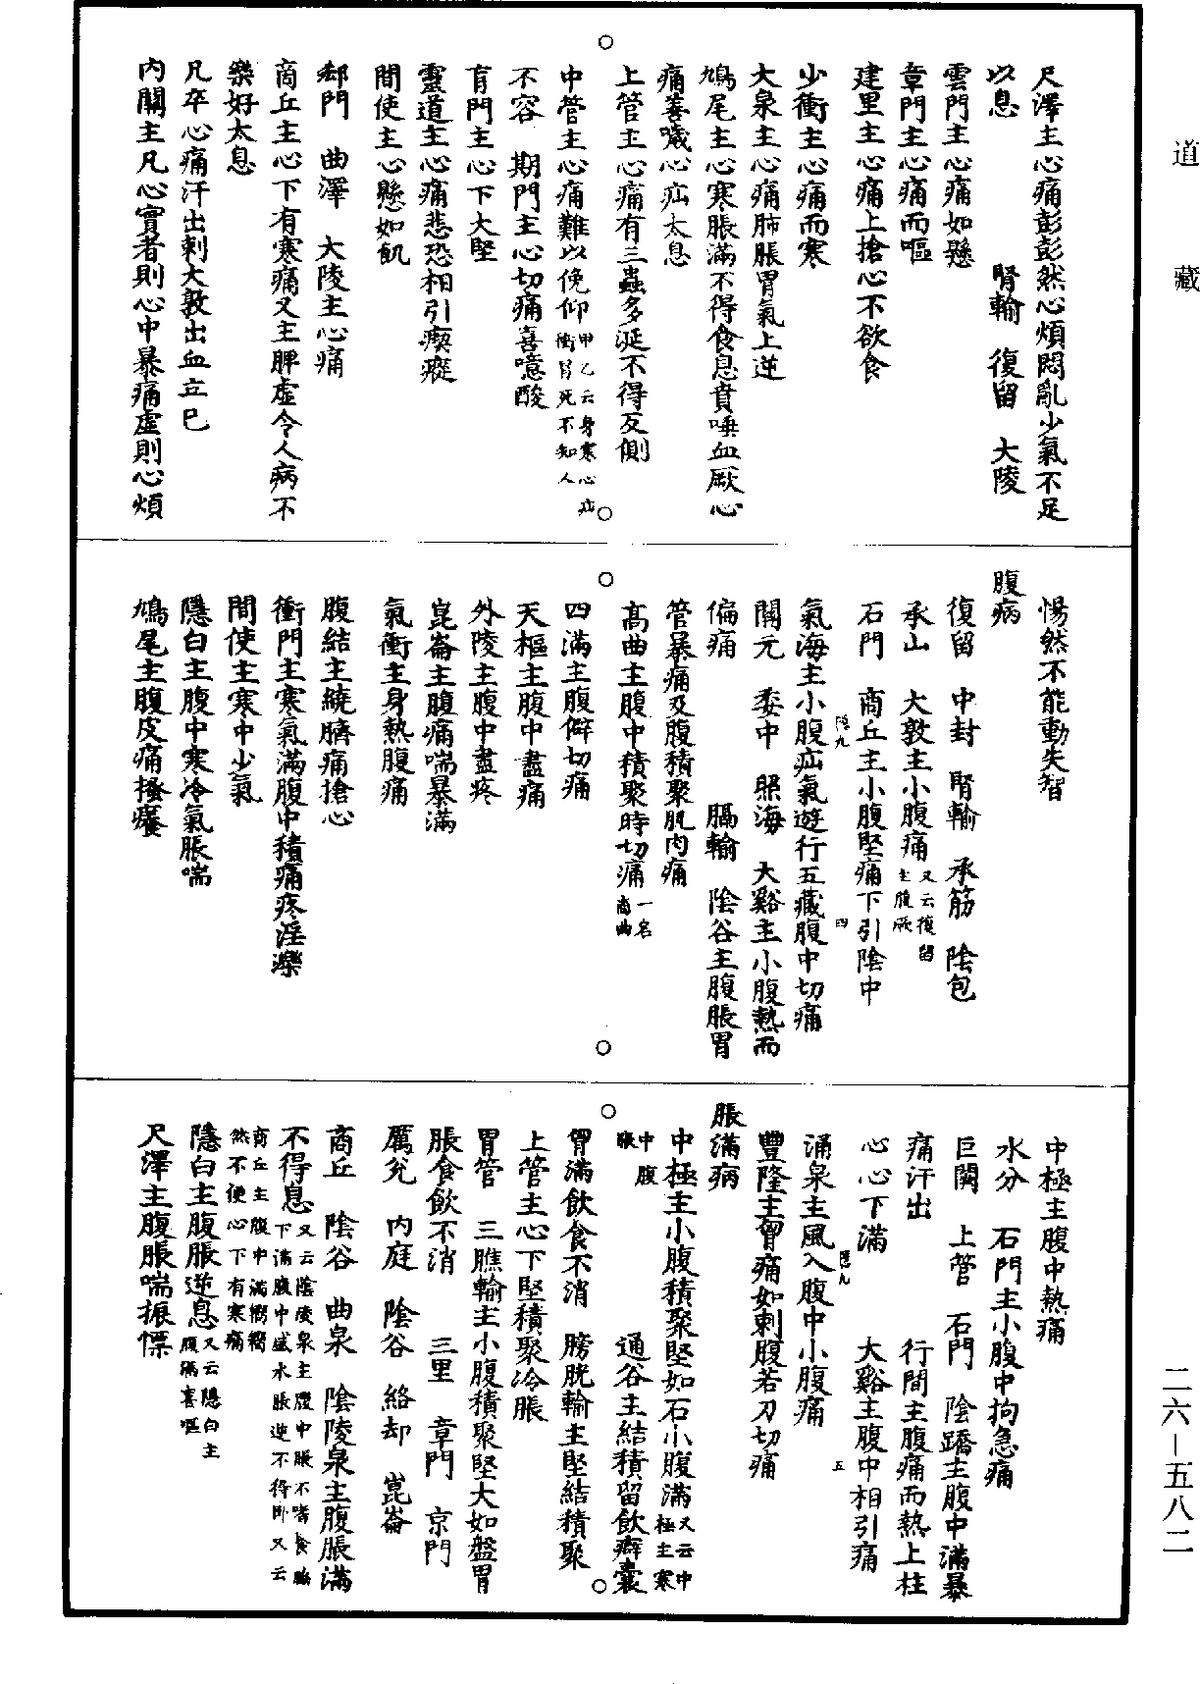 道藏
尺澤主心痛彭彭然心煩悶亂少氣不足
以息　腎輸　復留　大陵
雲門主心痛如懸
章門主心痛而嘔
建里主心痛上搶心不欲食
少衝主心痛而寒
大泉主心痛肺脹胃氣上逆
鳩尾主心寒脹滿不得食息賁唾血厥心
痛善噦心疝太息
上管主心痛有三蟲多涎不得反側
中管主心痛難以俛仰甲乙云身寒心疝衝冒死不知人
不容　期門主心切痛喜噫酸
肓門主心下大堅
靈道主心痛悲恐相引瘈瘲
間使主心懸如飢
郄門　曲澤　大陵主心痛
商丘主心下有寒痛又主脾虛令人病不
樂好太息
凡卒心痛汗出刺大敦出血立已
內關主凡心實者則心中暴痛虛則心煩
惕然不能動失智
腹病
復留　中封　腎輸　承筋　陰包
承山　大敦主小腹痛又云復留主腹厥
石門　商丘主小腹堅痛下引陰中
氣海主小腹疝氣遊行五藏腹中切痛
隱九　四
關元　委中　照海　大谿主小腹熱而
偏痛　膈輸　陰谷主腹脹胃
管暴痛及腹積聚肌肉痛
高曲主腹中積聚時切痛一名商曲
四滿主腹僻切痛
天樞主腹中盡痛
外陵主腹中盡疼
崑崙主腹痛喘暴滿
氣衝主身熱腹痛
腹結主繞臍痛搶心
衝門主寒氣滿腹中積痛疼淫濼
間使主寒中少氣
隱白主腹中寒冷氣脹喘
鳩尾主腹皮痛搔癢
中極主腹中熱痛
水分　石門主小腹中拘急痛
巨闕　上管　石門　陰蹻主腹中滿暴
痛汗出　行間主腹痛而熱上柱
心心下滿　大谿主腹中相引痛
涌泉主風入腹中小腹痛
隱九　五
豐隆主胷痛如刺腹若刀切痛
脹滿病
中極主小腹積聚堅如石小腹滿又云中極主寒
中腹脹　通谷主結積留飲癖囊
胷滿飲食不消　膀胱輸主堅結積聚
上管主心下堅積聚冷脹
胃管　三膲輸主小腹積聚堅大如盤胃
脹食飲不消　三里　章門　京門
厲兌　內庭　陰谷　絡却　崑崙
商丘　陰谷　曲泉　陰陵泉主腹脹滿
不得息又云陰陵泉主腹中脹不嗜食脇下滿腹中盛水脹逆不得臥又云
商丘主腹中滿嚮嚮然不便心下有寒痛
隱白主腹脹逆息又云隱白主腹滿喜嘔
尺澤主腹脹喘振慄
二六—五八二